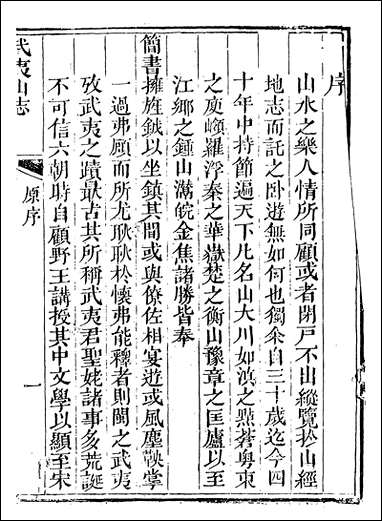 序
山水之樂人情所同顧或者閉戸不出縱覽於山經
地志而託之卧遊無如何也獨余自三十歲迄今四
十年中持節遍天下凡名山大川如滇之㸃蒼粤東
之庾嶺羅浮秦之華嶽楚之衡山豫章之匡廬以至
江鄉之鍾山灊皖金焦諸勝皆奉
簡書擁旌鉞以坐鎮其間或與僚佐相宴遊或風塵鞅掌
一過弗顧而所尤耿耿於懷弗能釋者則閩之武夷
攷武夷之蹟最古其所稱武夷君聖姥諸事多荒誕
不可信六朝時自顧野王講授其中文學以顯至宋
武夷山志
原序
一